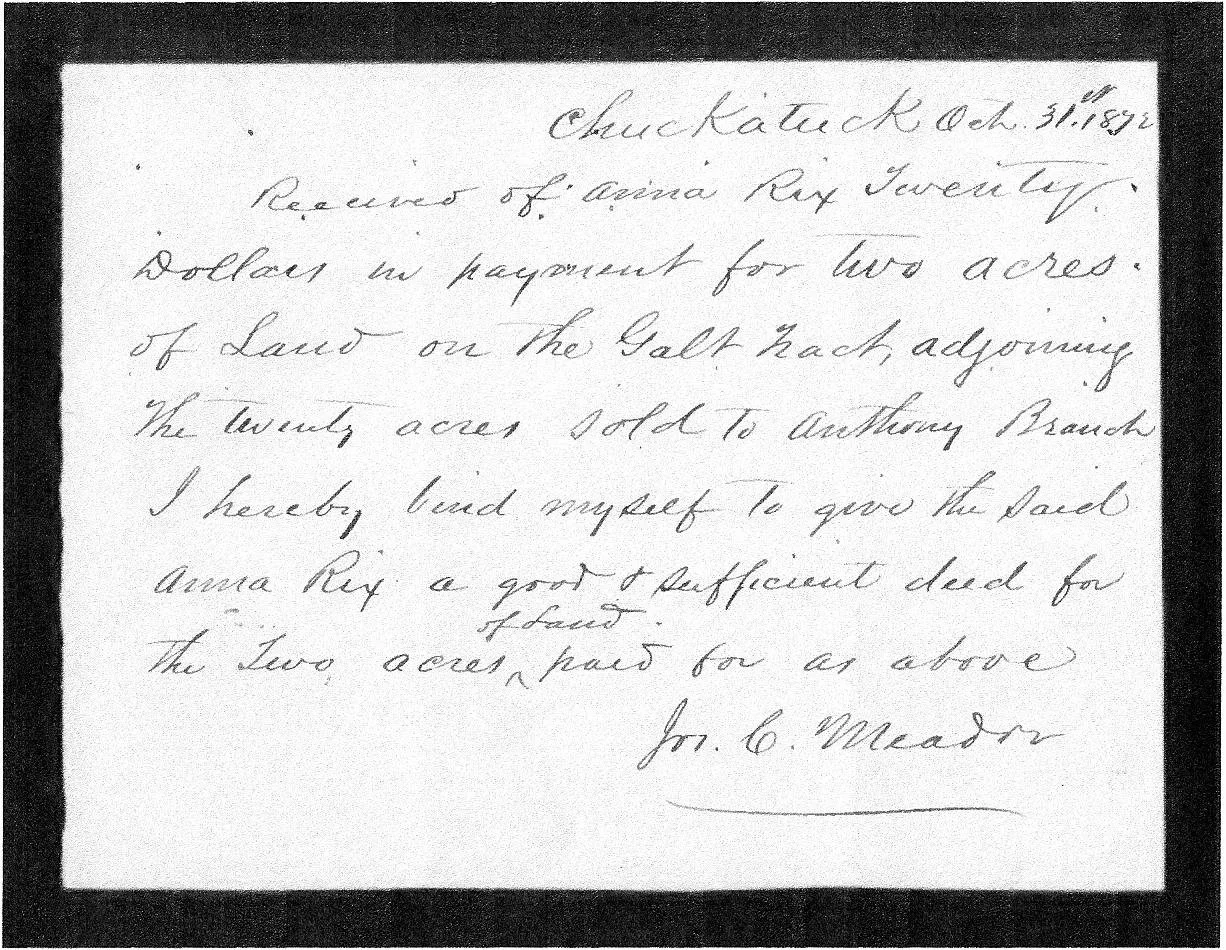 Chuckatuck Oct. 31st. 1872
Received of Anna Rix Twenty
Dollars in payment for two acres.
of Land on the Galt Tract, adjoining
the twenty acres sold to Anthony Branch
I hereby bind myself to give the said
Anna Rix a good & sufficient deed for
of Land.
the Two acres ‸ paid for as above
Jos. C. Meador